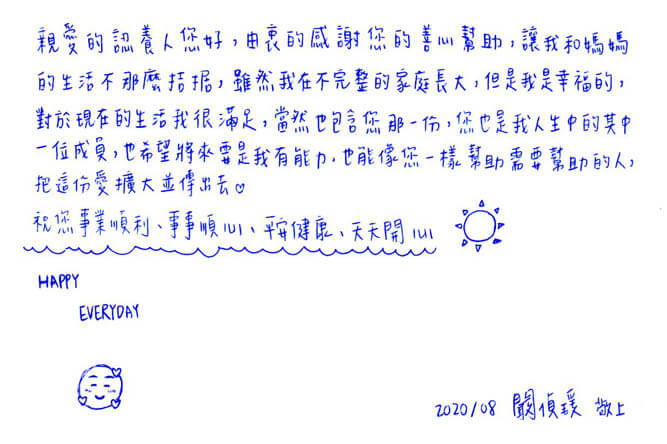 親愛的認養人您好，由衷的感謝您的善心幫助，讓我和媽媽
的生活不那麼拮据，雖然我在不完整的家庭長大，但是我是幸福的，
對於現在的生活我很滿足，當然也包含您那一份，您也是我人生中的其中
一位成員，也希望將來要是我有能力，也能像您一樣幫助需要幫助的人，
把這份愛擴大並傳出去♡
祝您事業順利、事事順心、平安健康、天天開心
HAPPY
EVERYDAY
2020/08 闕偵瑗 敬上